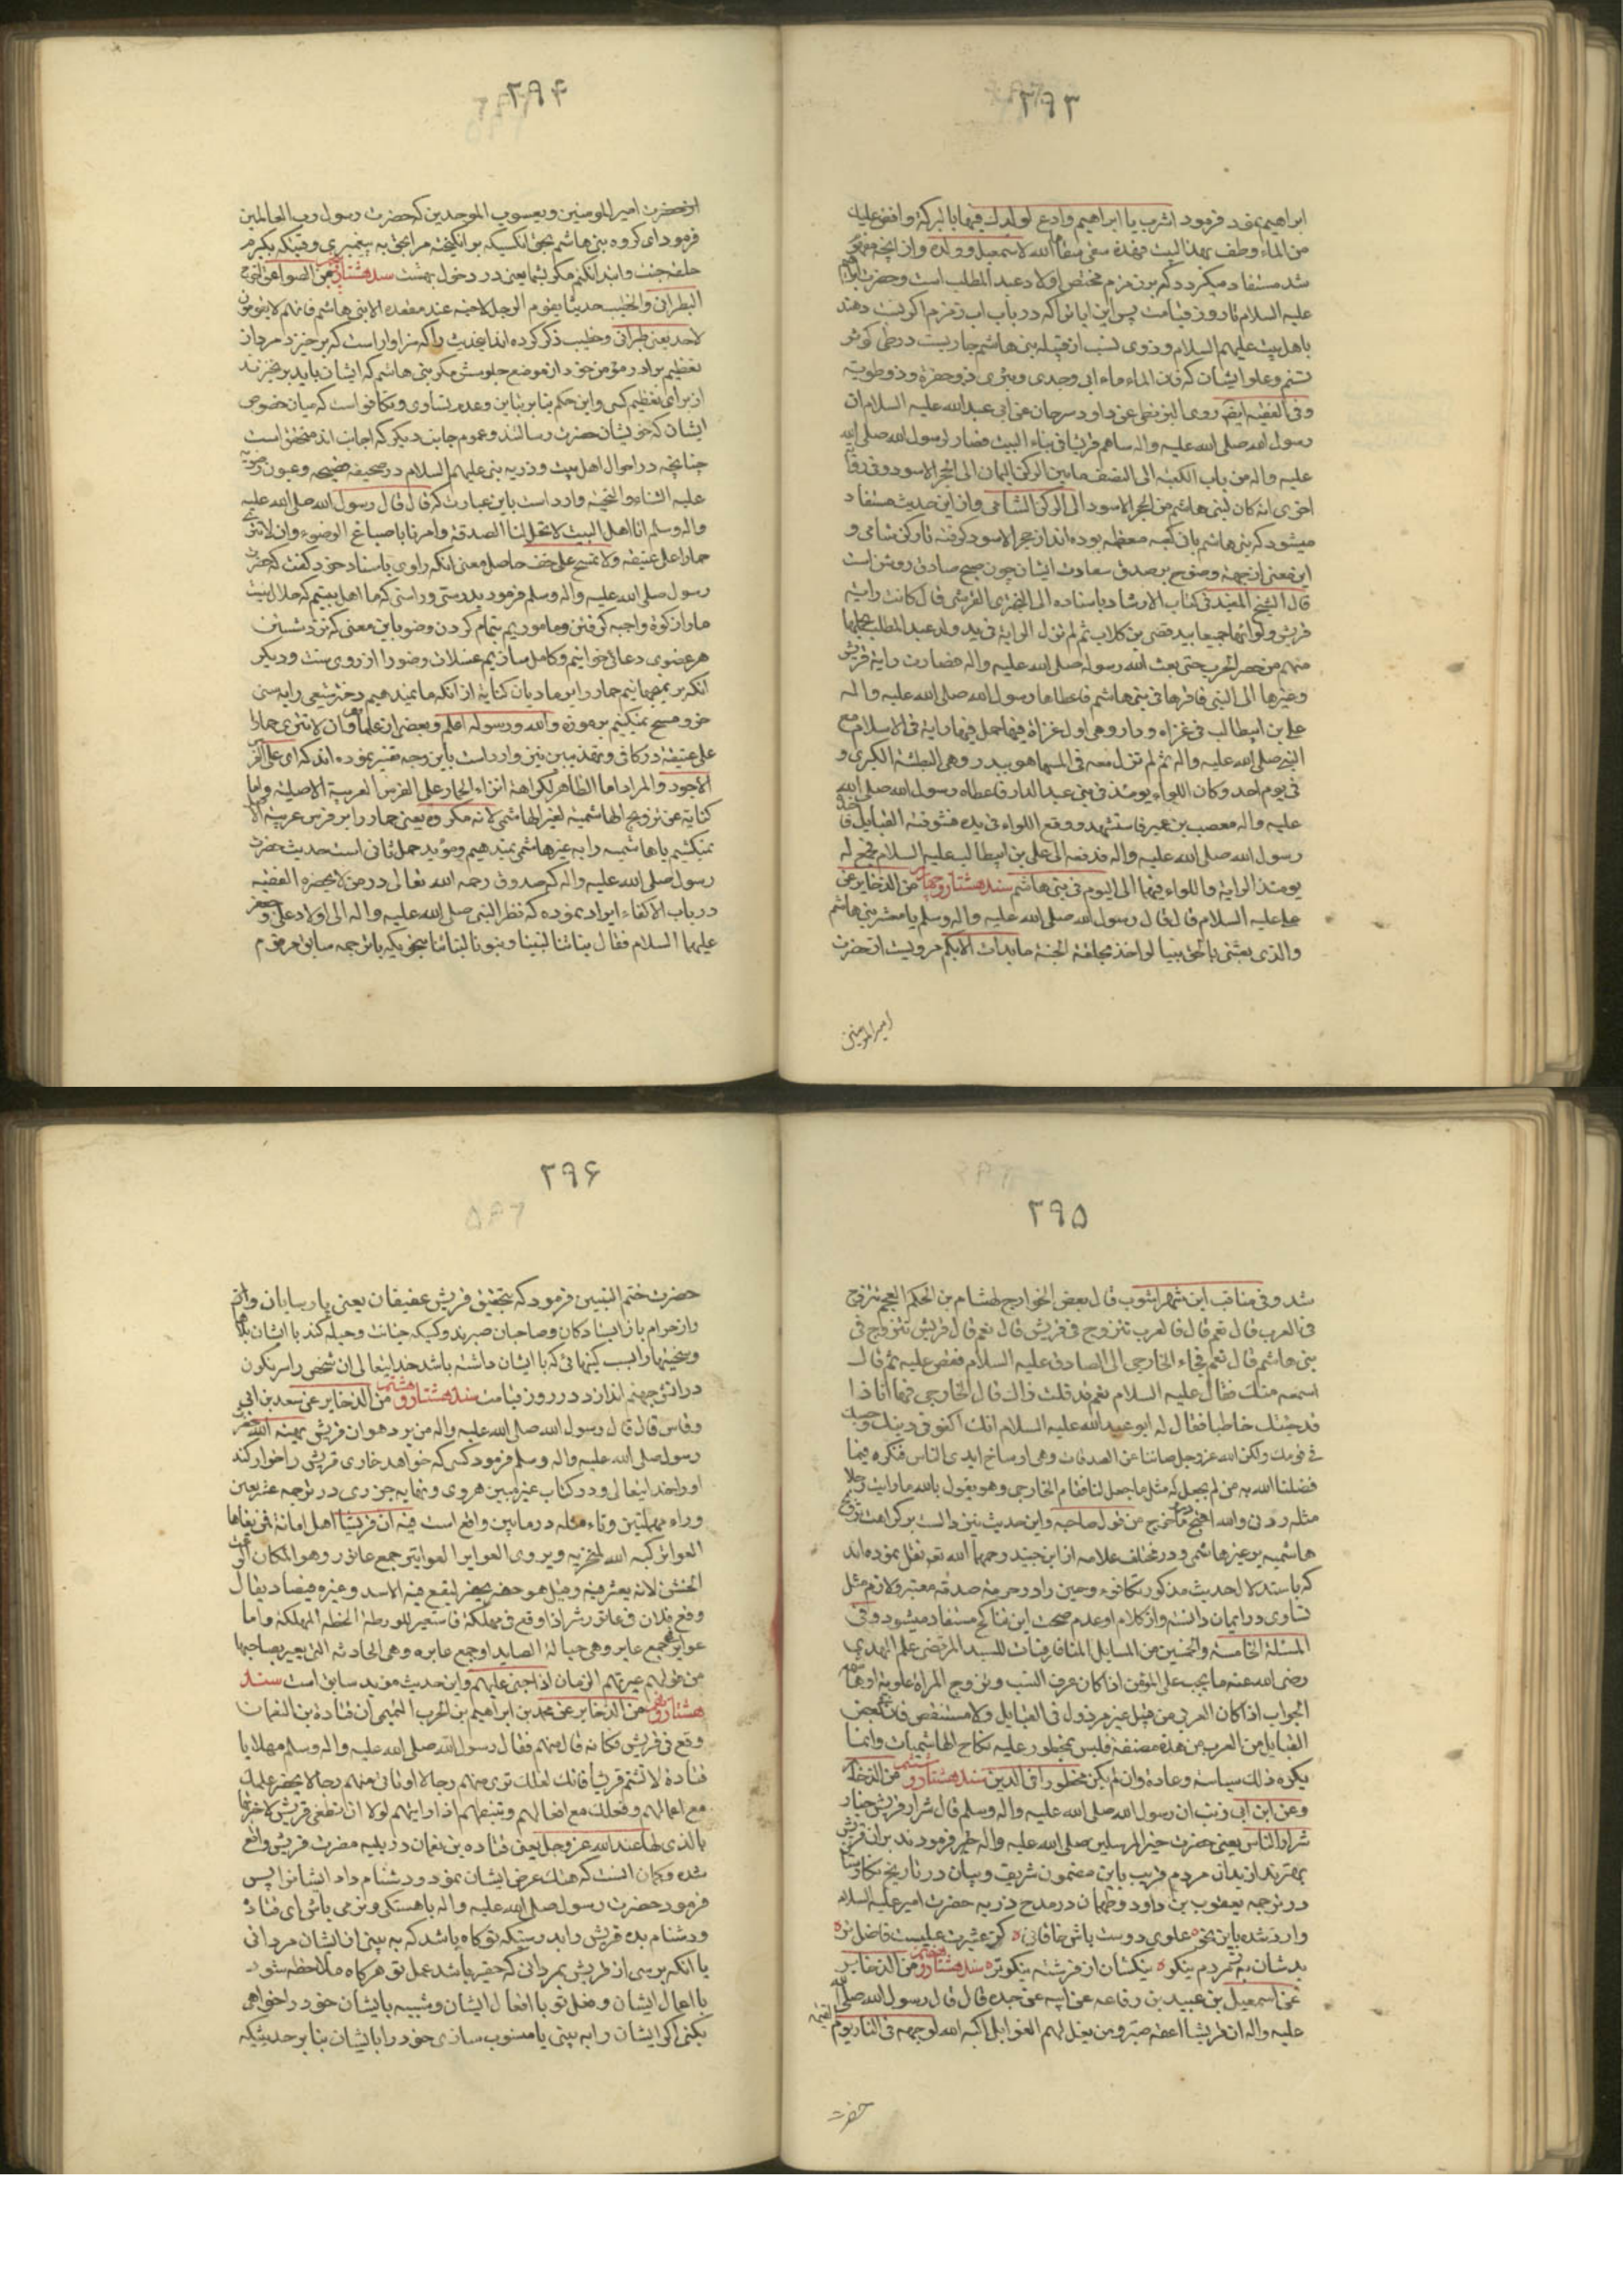 ۲۹۳
ابراهیم نمود فرمود اشرب یا ابراهیم وادع لولدک فیها بالبرکة وافض علیک
من الماء وطف بهذا البیت فهذه سقی سقاها الله لاسمعیل وولده وازینجه
شد مستفاد میکردد که برزمزم مختص اولاد عبد المطلب است وحضرت
علیه السلام تا روز قیامت پس این ابا ترا که در باب اب زمزم اکر نسبت دهند
باهل بیت علیهم السلام وذوی نسب از قبیله بنی هاشم جاریست در حق کوثر
تسنیم وعلو ایشان که فان الماء ماء ابی وجدی وبئری ذو حفرة وذو طویته
وفی الفقیه ایضا روی البزنطی عن داود سرحان عن ابی عبد الله علیه السلام ان
رسول الله صلی الله علیه واله ساهم قریشا فی بناء البیت فصار لرسول الله صلی الله
علیه واله من باب الکعبة الی النصف مابین الرکن الیمان الی الحجر الاسود وفی روایة
اخری انه کان لبنی هاشم من الحجر الاسود الی الرکن الشامی وازین حدیث مستفاد
میشود که بنی هاشم بان کعبه معظمه بوده اند از حجر الاسود کرفته تا رکن شامی و
این معنی از جهة وضوح بر صدق سعادت ایشان چون صبح صادق روشن است
قال الشیخ المفید فی کتاب الارشاد باسناده الی القرشی قال کانت رایة
قریش ولواؤها جمیعا بید قصی بن کلاب ثم لم تزل الرایة فی ید ولد عبد المطلب یحملها
منهم من حضر الحرب حتی بعث الله رسوله صلی الله علیه واله فصارت رایة قریش
وغیرها الی النبی فاقرها فی بنی هاشم فاعطاها رسول الله صلی الله علیه واله
علی بن ابیطالب فی غزاه ودان وهی اول غزاة فیها حمل فیها رایة فی الاسلام مع
النبی صلی الله علیه واله ثم لم تزل معه فی المشاهد ببدر وهی البطشة الکبری و
فی یوم احد وکان اللواء یومئذ فی بنی عبد الدار فاعطاه رسول الله صلی الله
علیه واله مصعب بن عمیر فاستشهد ووقع اللواء فی یده فتشوفته القبایل فاخذه
رسول الله صلی الله علیه واله فدفعه الی علی بن ابیطالب علیه السلام فجمع له
یومئذ الرایة واللواء فهما الی الیوم فی بنی هاشم سند هشتاد وچهار من الذخایر عن
علی علیه السلام قال قال رسول الله صلی الله علیه واله وسلم یا معشر بنی هاشم
والذی بعثنی بالحق نبیا لو اخذ بحلقة الجنة مابدات الا بکم مرویست از حضرت
امیرالمومنین
۲۹۴
از حضرت امیر المومنین ویعسوب الموحدین که حضرت رسول رب العالمین
فرمود ای کروه بنی هاشم بحق انکسیکه برانکیخته مرا بحق به پیغمبری وقتیکه بکیرم
حلقه جنت وابتدا نکنم مکر بشما یعنی در دخول بهشت سند هشتاد من الصواعق اخرج
الطبرانی والخطیب حدیثا یقوم الرجل لاخیه عن مقعده الا بنی هاشم فانهم لا یقومون
لاحد یعنی طبرانی وخطیب ذکر کرده اند اینحدیث را که سزاوار است که برخیزد مرد از
تعظیم برادر مؤمن خود از موضع جلوسش مکر بنی هاشم که ایشان باید برنخیزند
از برای تعظیم کسی واین حکم بنا بر تباین وعدم تساوی وتکافواست که میان خصوص
ایشان که خویشان حضرت رسالتند وعموم جانب دیکر که اجانب اند متحقق است
چنانچه در احوال اهل بیت وذریه نبی علیهم السلام در صحیفه صحیحه وعیون رضویه
علیه الثناء والتحیة وارد است باین عبارت که قال قال رسول الله صلی الله علیه
واله وسلم انا اهل البیت لا تحل لنا الصدقة وامرنا باصباغ الوضوء وان لا ننزی
حمارا علی عتیقه ولا نمسح علی خف حاصل معنی انکه راوی باسناد خود کفت که حضرت
رسول صلی الله علیه واله وسلم فرمود بدرستی وراستی که ما اهل بیتیم که حلال نیست
مارا زکوة واجبه کرفتن وماموریم بتمام کردن وضو باین معنی که نزد شستن
هر عضوی دعائی خوانیم وکامل سازیم غسلات وضورا از روی سنت ودیکر
انکه بر نمیجهانیم حمار را بر مادیان کنایة از انکه ما نمیدهیم دختر شیعی را به سنی
خر ومسح نمیکنیم بر موزه والله ورسوله اعلم وبعضی از علما وان لا ننزی حمارا
علی عتیقة در کافی وتهذیب نیز وارد است باین وجه تفسیر نموده اند که ای علی الفرس
الاجود والمراد اما الظاهر لکراهة انزاء الحمار علی الفرس العربیة الاصلیة واما
کنایة عن تزویج الهاشمیة لغیر الهاشمی لانه مکروه یعنی حمار را بر فرس عربیه
نمیکشیم یا هاشمیه را به غیر هاشمی نمیدهیم ومؤید حمل ثانی است حدیث حضرت
رسول صلی الله علیه واله که صدوق رحمه الله تعالی در من لا یحضره الفقیه
در باب الاکفاء ایراد نموده که نظر النبی صلی الله علیه واله الی اولاد علی وجعفر
علیهما السلام فقال بناتنا لبنینا وبنونا لبناتنا بنحویکه با ترجمه سابق مرقوم
۲۹۵
شد وفی مناقب ابن شهراشوب قال بعض الخوارج لهشام بن الحکم العجم تتزوج
فی العرب قال نعم قال فالعرب تتزوج فی قریش قال نعم قال فقریش تتزوج فی
بنی هاشم قال نعم فجاء الخارجی الی الصادق علیه السلام فقص علیه ثم قال
اسمعه منک فقال علیه السلام نعم قد قلت ذاک قال الخارجی فها انا ذا
قد جئتک خاطبا فقال له ابو عبد الله علیه السلام انک لکفو فی دینک وحسبک
فی قومک ولکن الله عز وجل صاننا عن الصدقات وهی اوساخ ایدی الناس فنکره فیما
فضلنا الله به من لم یجعل له مثل ما جعل لنا فقام الخارجی وهو یقول بالله مارایت رجلا
مثله ردنی والله اقبح رد وماخرج من قول صاحبه واین حدیث نیز دالست بر کراهت تزویج
هاشمیه بر غیر هاشمی ودر مختلف علامه از ابن جنید رحمهما الله تع نقل نموده اند
که باستدلال حدیث مذکور تکافوء وحین را در حرمة صدقه معتبر ولازم مثل
تساوی در ایمان دانسته واز کلام او عدم صحت این تناکح مستفاد میشود وفی
المسئلة الخامسة والخمسین من المسایل المیافارقیات للسید المرتضی علم الهدی
رضی الله عنه
الجواب اذا کان العربی من قبیل غیر مرذول فی القبایل ولا مستنقص فان بعض
القبایل من العرب من هذه فلیس بمحظور علیه نکاح الهاشمیات وانما
یکره ذلک سیاسة وعادة وان لم یکن محظورا فی الدین سند هشتاد وششم من الذخایر
وعن ابن ابی ذئب ان رسول الله صلی الله علیه واله وسلم قال شرار قریش خیار
شرار الناس یعنی حضرت خیر المرسلین صلی الله علیه واله فرمودند بدان قریش
بهترند از بدان مردم قریب باین مضمون شریف وبیان در تاریخ نکارستان
در ترجمه یعقوب بن داود وطهمان در مدح ذریه حضرت امیر علیه السلام
وارد شده باین نحو علوی دوست باش خاقانی کز عشیرت علیست فاضل تر
بدشان به ز مردم نیکو نیکشان از فرشته نیکوتر سند هشتاد وهفتم من الذخایر
عن اسمعیل بن عبید بن رفاعه عن ابیه عن جده قال قال رسول الله صلی الله
علیه واله ان قریشا اعفه صبر ومن بغی لهم الغوایل اکبه الله لوجهه فی النار یوم القیمة
حضرت
۲۹۶
حضرت ختم النبیین فرمود که بتحقیق قریش عفیفان یعنی پارسایان
واز حرام باز ایستادکان وصاحبان صبرند وکسیکه خیانت وحیله کند با ایشان بلاها
وسختیها را بسبب کینهائی که با ایشان داشته باشد خدایتعالی ان شخص را سرنکون
در اتش جهنم اندازد در روز قیامت سند هشتاد وهشتم من الذخایر عن سعد بن ابی
وقاص قال قال رسول الله صلی الله علیه واله من یرد هوان قریش یهینه الله حضرت
رسول صلی الله علیه واله وسلم فرمود کسی که خواهد خاری قریش را خوار کند
اورا خدایتعالی ودر کتاب غریبین هروی ونهایه جزری در ترجمه عین
وراء مهملتین وثاء مثلثه در مابین واقع است فیه ان قریشا اهل امانة من بغاها
العواثر کبه الله لمنخریه ویروی العواثیر العواثر جمع عاثور وهو المکان الوعث
الخشن لانه یعثر فیه وقیل هو حفره یحفر لیقع فیه الاسد وغیره فیصاد یقال
وقع فلان فی عاثور شر اذا وقع فی مهلکة فاستعیر للورطة الخطه المهلکة واما
عواثر فجمع عاثر وهی حبالة الصاید او جمع عاثره وهی الحادثه التی یعثر بصاحبها
من قولهم عثر بهم الزمان اذا اجنی علیهم واین حدیث مؤید سابق است سند
هشتاد ونهم من الذخایر عن محمد بن ابراهیم بن الحرث التیمی ان قتادة بن النعمان
وقع فی قریش فکانه قال منهم فقال رسول الله صلی الله علیه واله وسلم مهلا یا
قتادة لا تشتم قریشا فانک لعلک تری منهم رجالا او تاتی منهم رجالا یحقر عملک
مع اعمالهم وفعلک مع افعالهم وتغبطهم اذا رایتهم لولا ان تطغی قریش لاخبرتها
بالذی لها عند الله عز وجل یعنی قتاده بن نعمان در پی مضرت قریش واقع
شده وکمان انست که هتک عرض ایشان نمود ودشنام داد ایشانرا پس
فرمود حضرت رسول صلی الله علیه واله باهستکی ونرمی باش ای قتاده
ودشنام مده قریش را بدرستیکه تو کاه باشد که به بینی از ایشان مردانی
یا انکه برسی از قریش بمردانی که حقیر باشد عمل تو هرکاه ملاحظه شود
با اعمال ایشان وفعل تو با افعال ایشان وشبیه بایشان خود را خواهی
بکنی اکر ایشان را به بینی یا منسوب سازی خود را بایشان بنا بر حدیثیکه